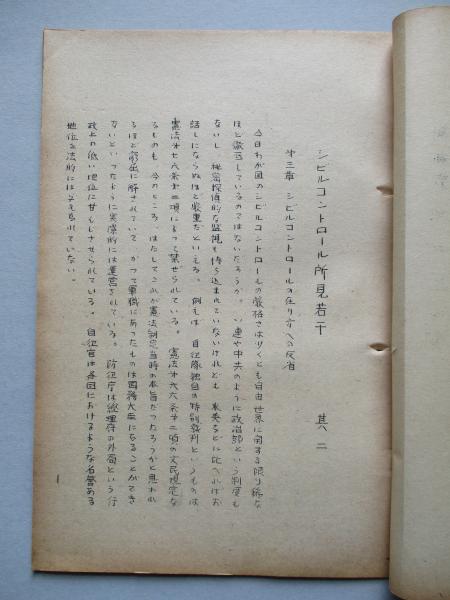 シビルコントロール所見若干　其二
第三章 シビルコントロールの在り方への反省
今日わが国のシビルコントロールの厳格さは少くとも自由世界に関する限り稀な
ほど徹底しているのではないだろうか。ソ連や中共のように政治部という制度も
ないし、秘密探偵的な監視も持ち込まれていないけれども、米英などに比べればお
話しにならぬほど厳重だといえる。例えば、自衛隊独自の特別裁判というものは
憲法第七六条第二項によって禁ぜられている。憲法第六六条第二項の文民規定な
るものも、今のところ、はたしてこれが憲法制定当時の本旨だったろうかと思われ
るほど窮屈に解されていて、かつて軍職にあったものは国務大臣になることができ
ないといったように実際的には運営されている。防衛庁は総理府の外局という行
政上の低い地位に甘んじさせられている。自衛官は各国におけるような名誉ある
地位を法的には与えられていない。
1